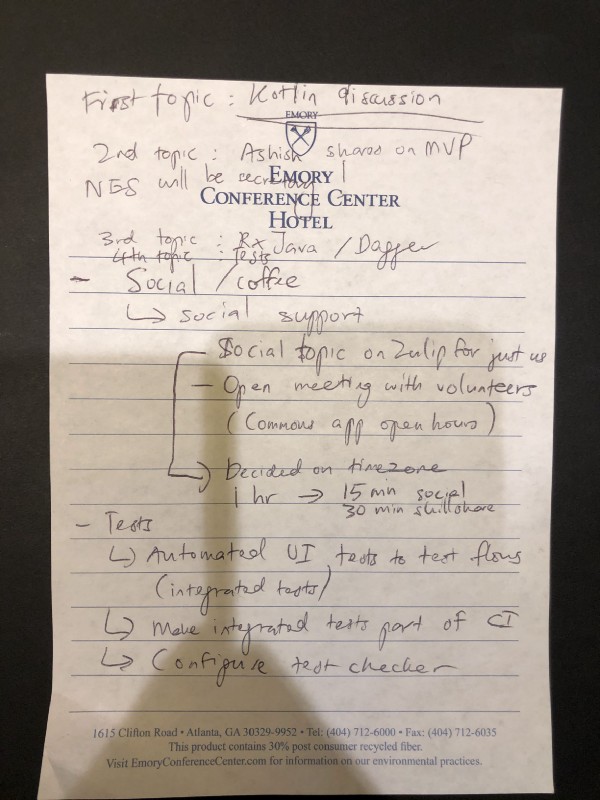 First topic : Kotlin discussion
EMORY
2nd topic : Ashish shares on MVP
NES will be secretary
EMORY
CONFERENCE CENTER
HOTEL
3rd topic : Rx Java / Dagger
4th topic : Tests
- Social / coffee
↳ social support
Social topic on Zulip for just us
- Open meeting with volunteers
(Commons app open hours)
Decided on timezone
1 hr → 15 min social
30 min skillshare
- Tests
↳ Automated UI tests to test flows
(integrated tests)
↳ Make integrated tests part of CI
↳ Configure test checker
1615 Clifton Road • Atlanta, GA 30329-9952 • Tel: (404) 712-6000 • Fax: (404) 712-6035
This product contains 30% post consumer recycled fiber.
Visit EmoryConferenceCenter.com for information on our environmental practices.